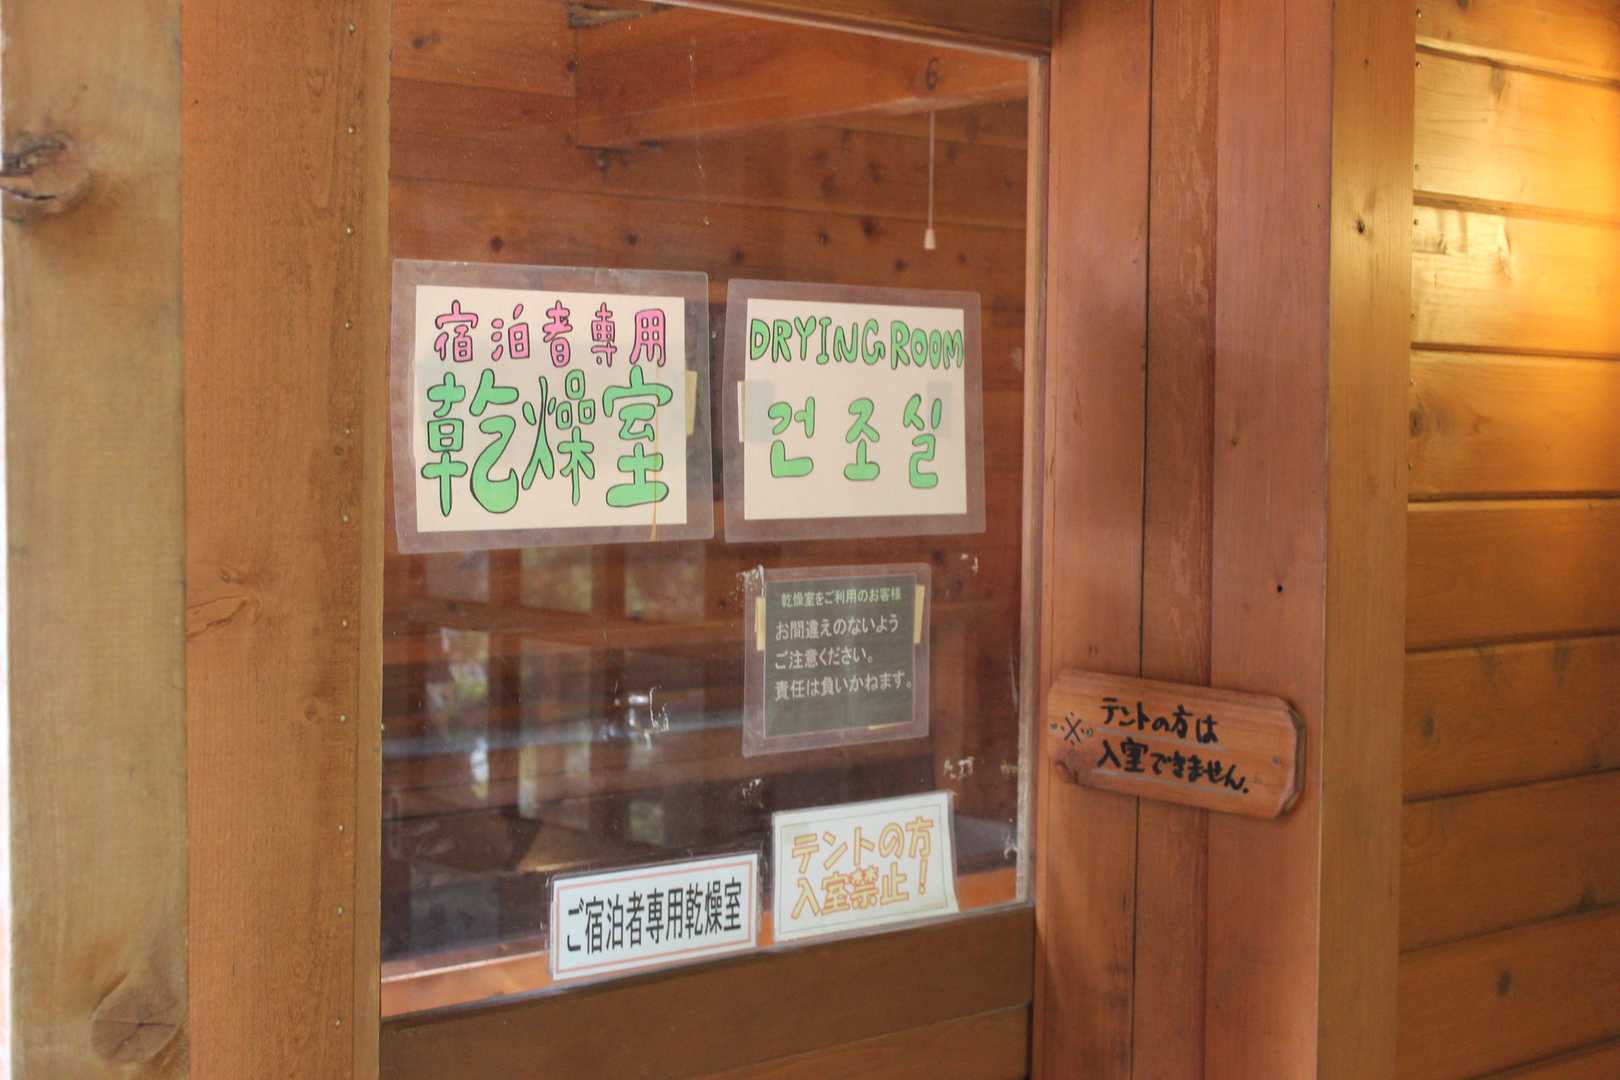 宿泊者専用
乾燥室
DRYING ROOM
건조실
乾燥室をご利用のお客様
お間違えのないよう
ご注意ください。
責任は負いかねます。
※テントの方は
入室できません.
テントの方
入室禁止！
ご宿泊者専用乾燥室
6